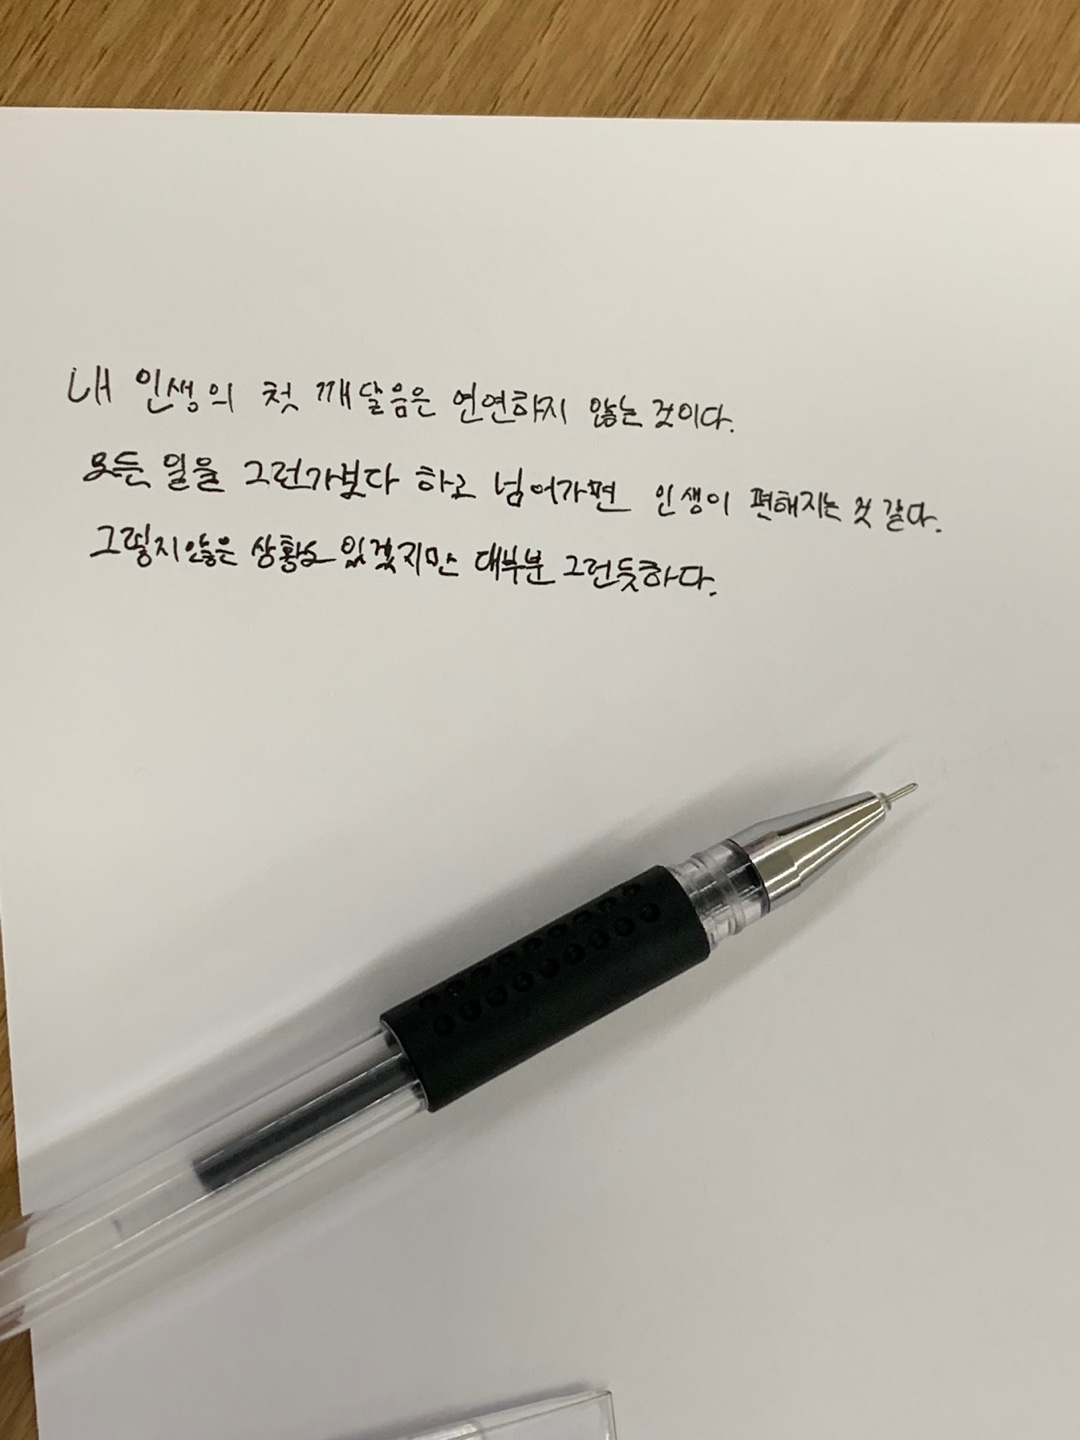 내 인생의 첫 깨달음은 연연하지 않는 것이다.
모든 일을 그런가보다 하고 넘어가면 인생이 편해지는 것 같다.
그렇지않은 상황도 있겠지만 대부분 그런듯하다.